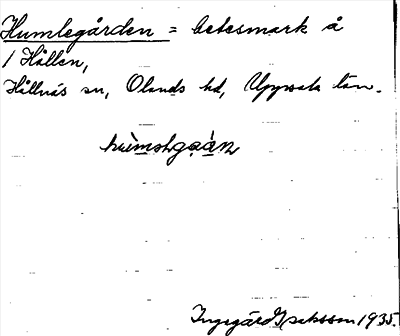 Humlegården = betesmark å
1 Hållen,
Hållnäs sn, Olands hd, Uppsala län.
Ingegärd 1935.